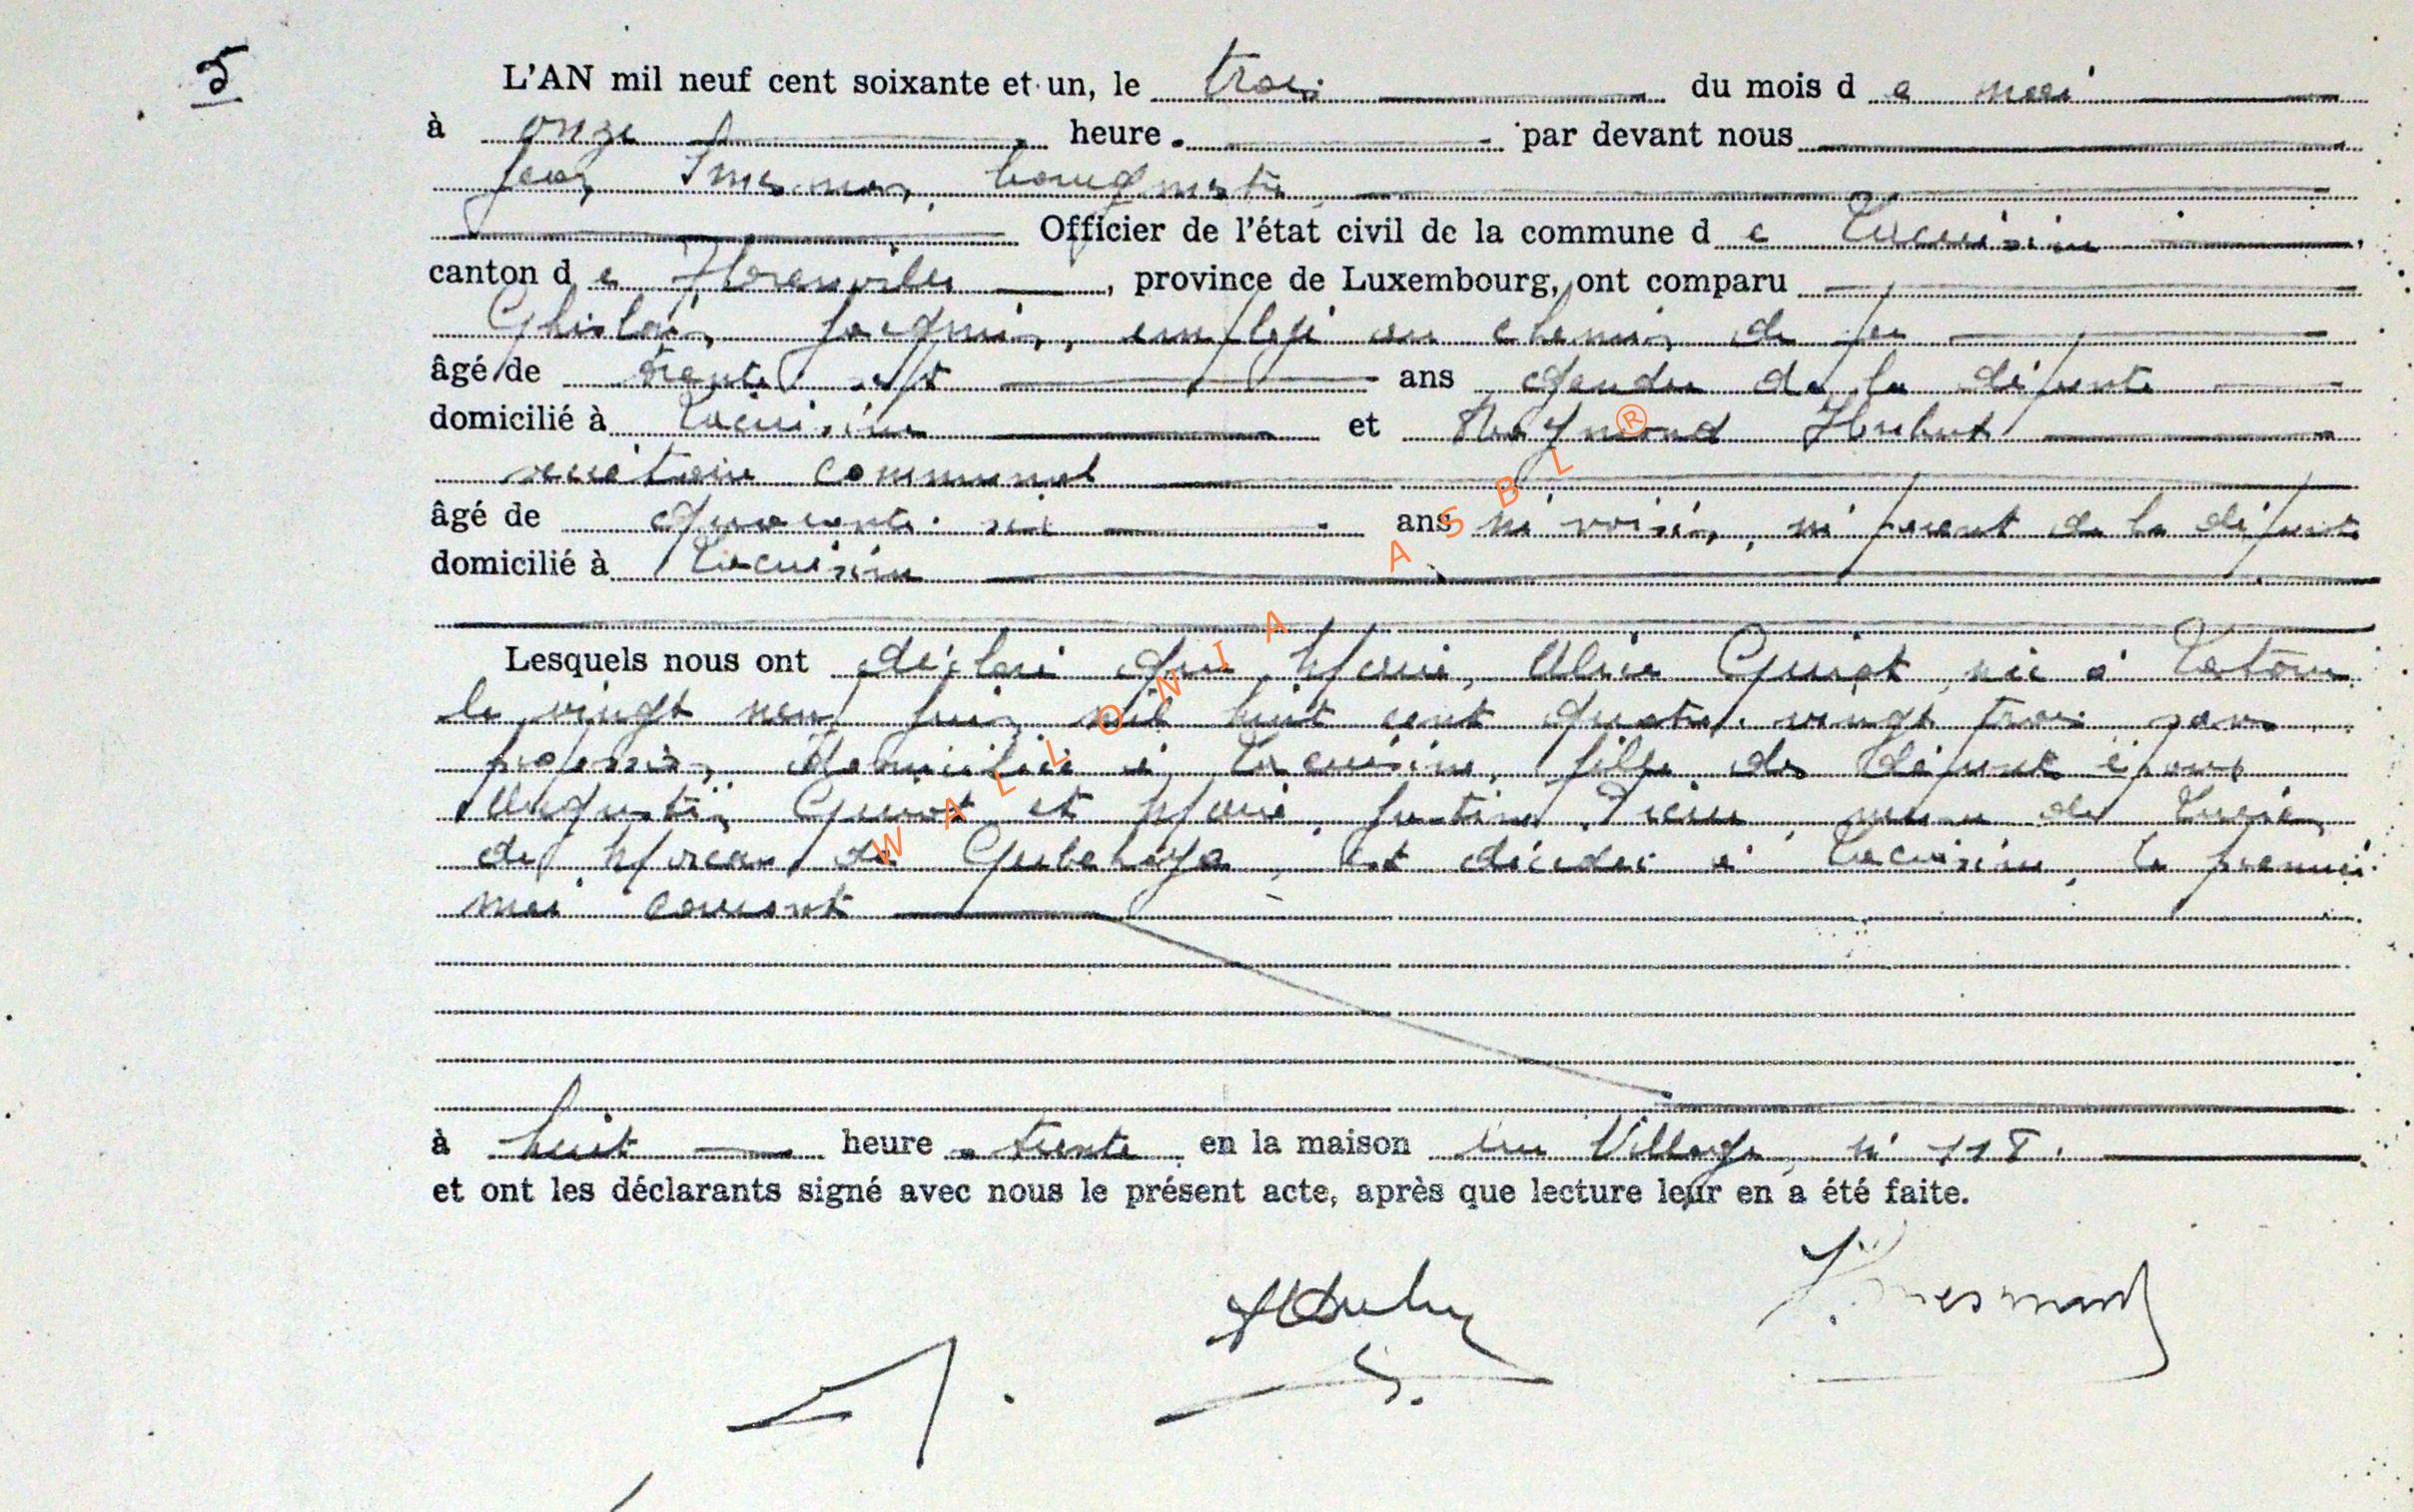 5
L'AN mil neuf cent soixante et un, le trois du mois de mai
à onze heures par devant nous
Jean bourgmestre
Officier de l'état civil de la commune de Lacuisine,
canton de Florenville, province de Luxembourg, ont comparu
Ghislain Jacqmin, employé au chemin de fer
âgé de trente sept ans gendre de la défunte
domicilié à Lacuisine et Raymond Hubert
secrétaire communal
âgé de quarante six ans ni voisin, ni parent de la défunte
domicilié à Lacuisine
Lesquels nous ont déclaré que Marie, Alice Guiot, née à Latour
le vingt neuf juin mil huit cent quatre vingt trois sans
profession, domiciliée à Lacuisine, fille des défunts époux
Augustin Guiot et Marie, Justine, veuve de Lucien
de Moreau de, est décédée à Lacuisine, le premier
mai courant
à huit heures trente en la maison rue Village, n° 118.
et ont les déclarants signé avec nous le présent acte, après que lecture leur en a été faite.
WALLONIA ASBL ®